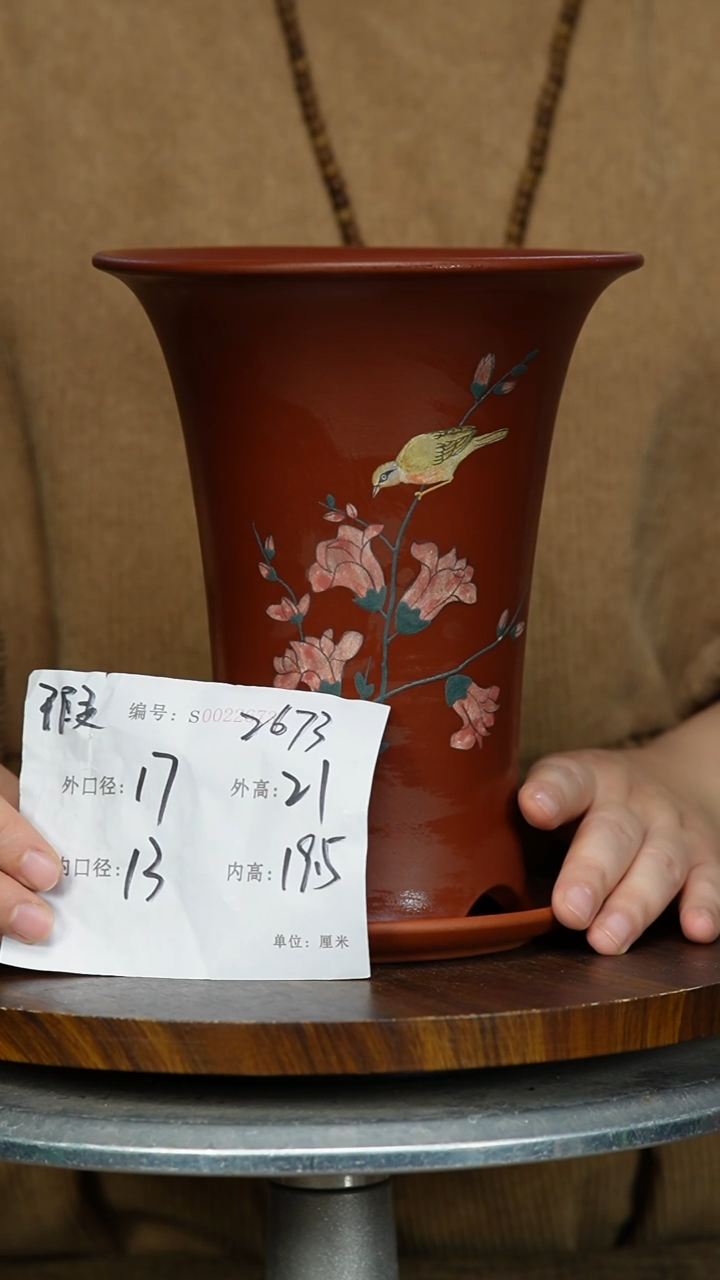 瑕 编号: S0022673 2673
外口径: 17 外高: 21
内口径: 13 内高: 19.5
单位: 厘米